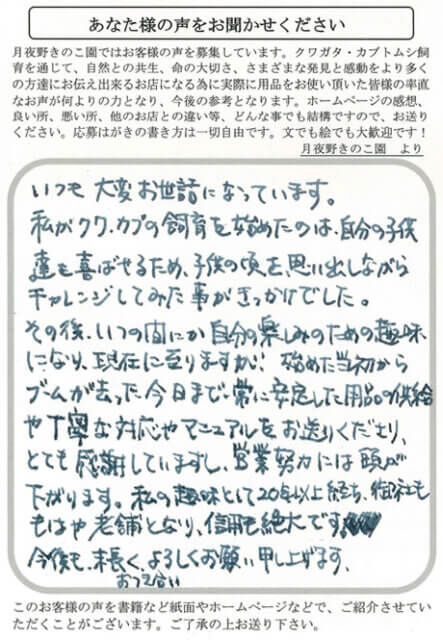 あなた様の声をお聞かせください
月夜野きのこ園ではお客様の声を募集しています。クワガタ・カブトムシ飼
育を通じて、自然との共生、命の大切さ、さまざまな発見と感動をより多く
の方達にお伝え出来るお店になる為に実際に用品をお使い頂いた皆様の率直
なお声が何よりの力となり、今後の参考となります。ホームページの感想、
良い所、悪い所、他のお店との違い等、どんな事でも結構ですので、お送り
ください。応募はがきの書き方は一切自由です。文でも絵でも大歓迎です！
月夜野きのこ園　より
いつも大変お世話になっています。
私がクワ.カブの飼育を始めたのは、自分の子供
達を喜ばせるため、子供の頃を思い出しながら
チャレンジしてみた事がきっかけでした。
その後、いつの間にか自分の楽しみのための趣味
になり、現在に至りますが、始めた当初から
ブームが去った今日まで、常に安定した用品の供給
や丁寧な対応やマニュアルをお送りくださり、
とても感謝していますし、営業努力には頭が
下がります。私の趣味として20年以上経ち、御社も
もはや老舗となり、信用も絶大です。
今後も、末長く、よろしくお願い申し上げます、
おつき合い
このお客様の声を書籍など紙面やホームページなどで、ご紹介させてい
ただくことがございます。ご了承の上お送り下さい。